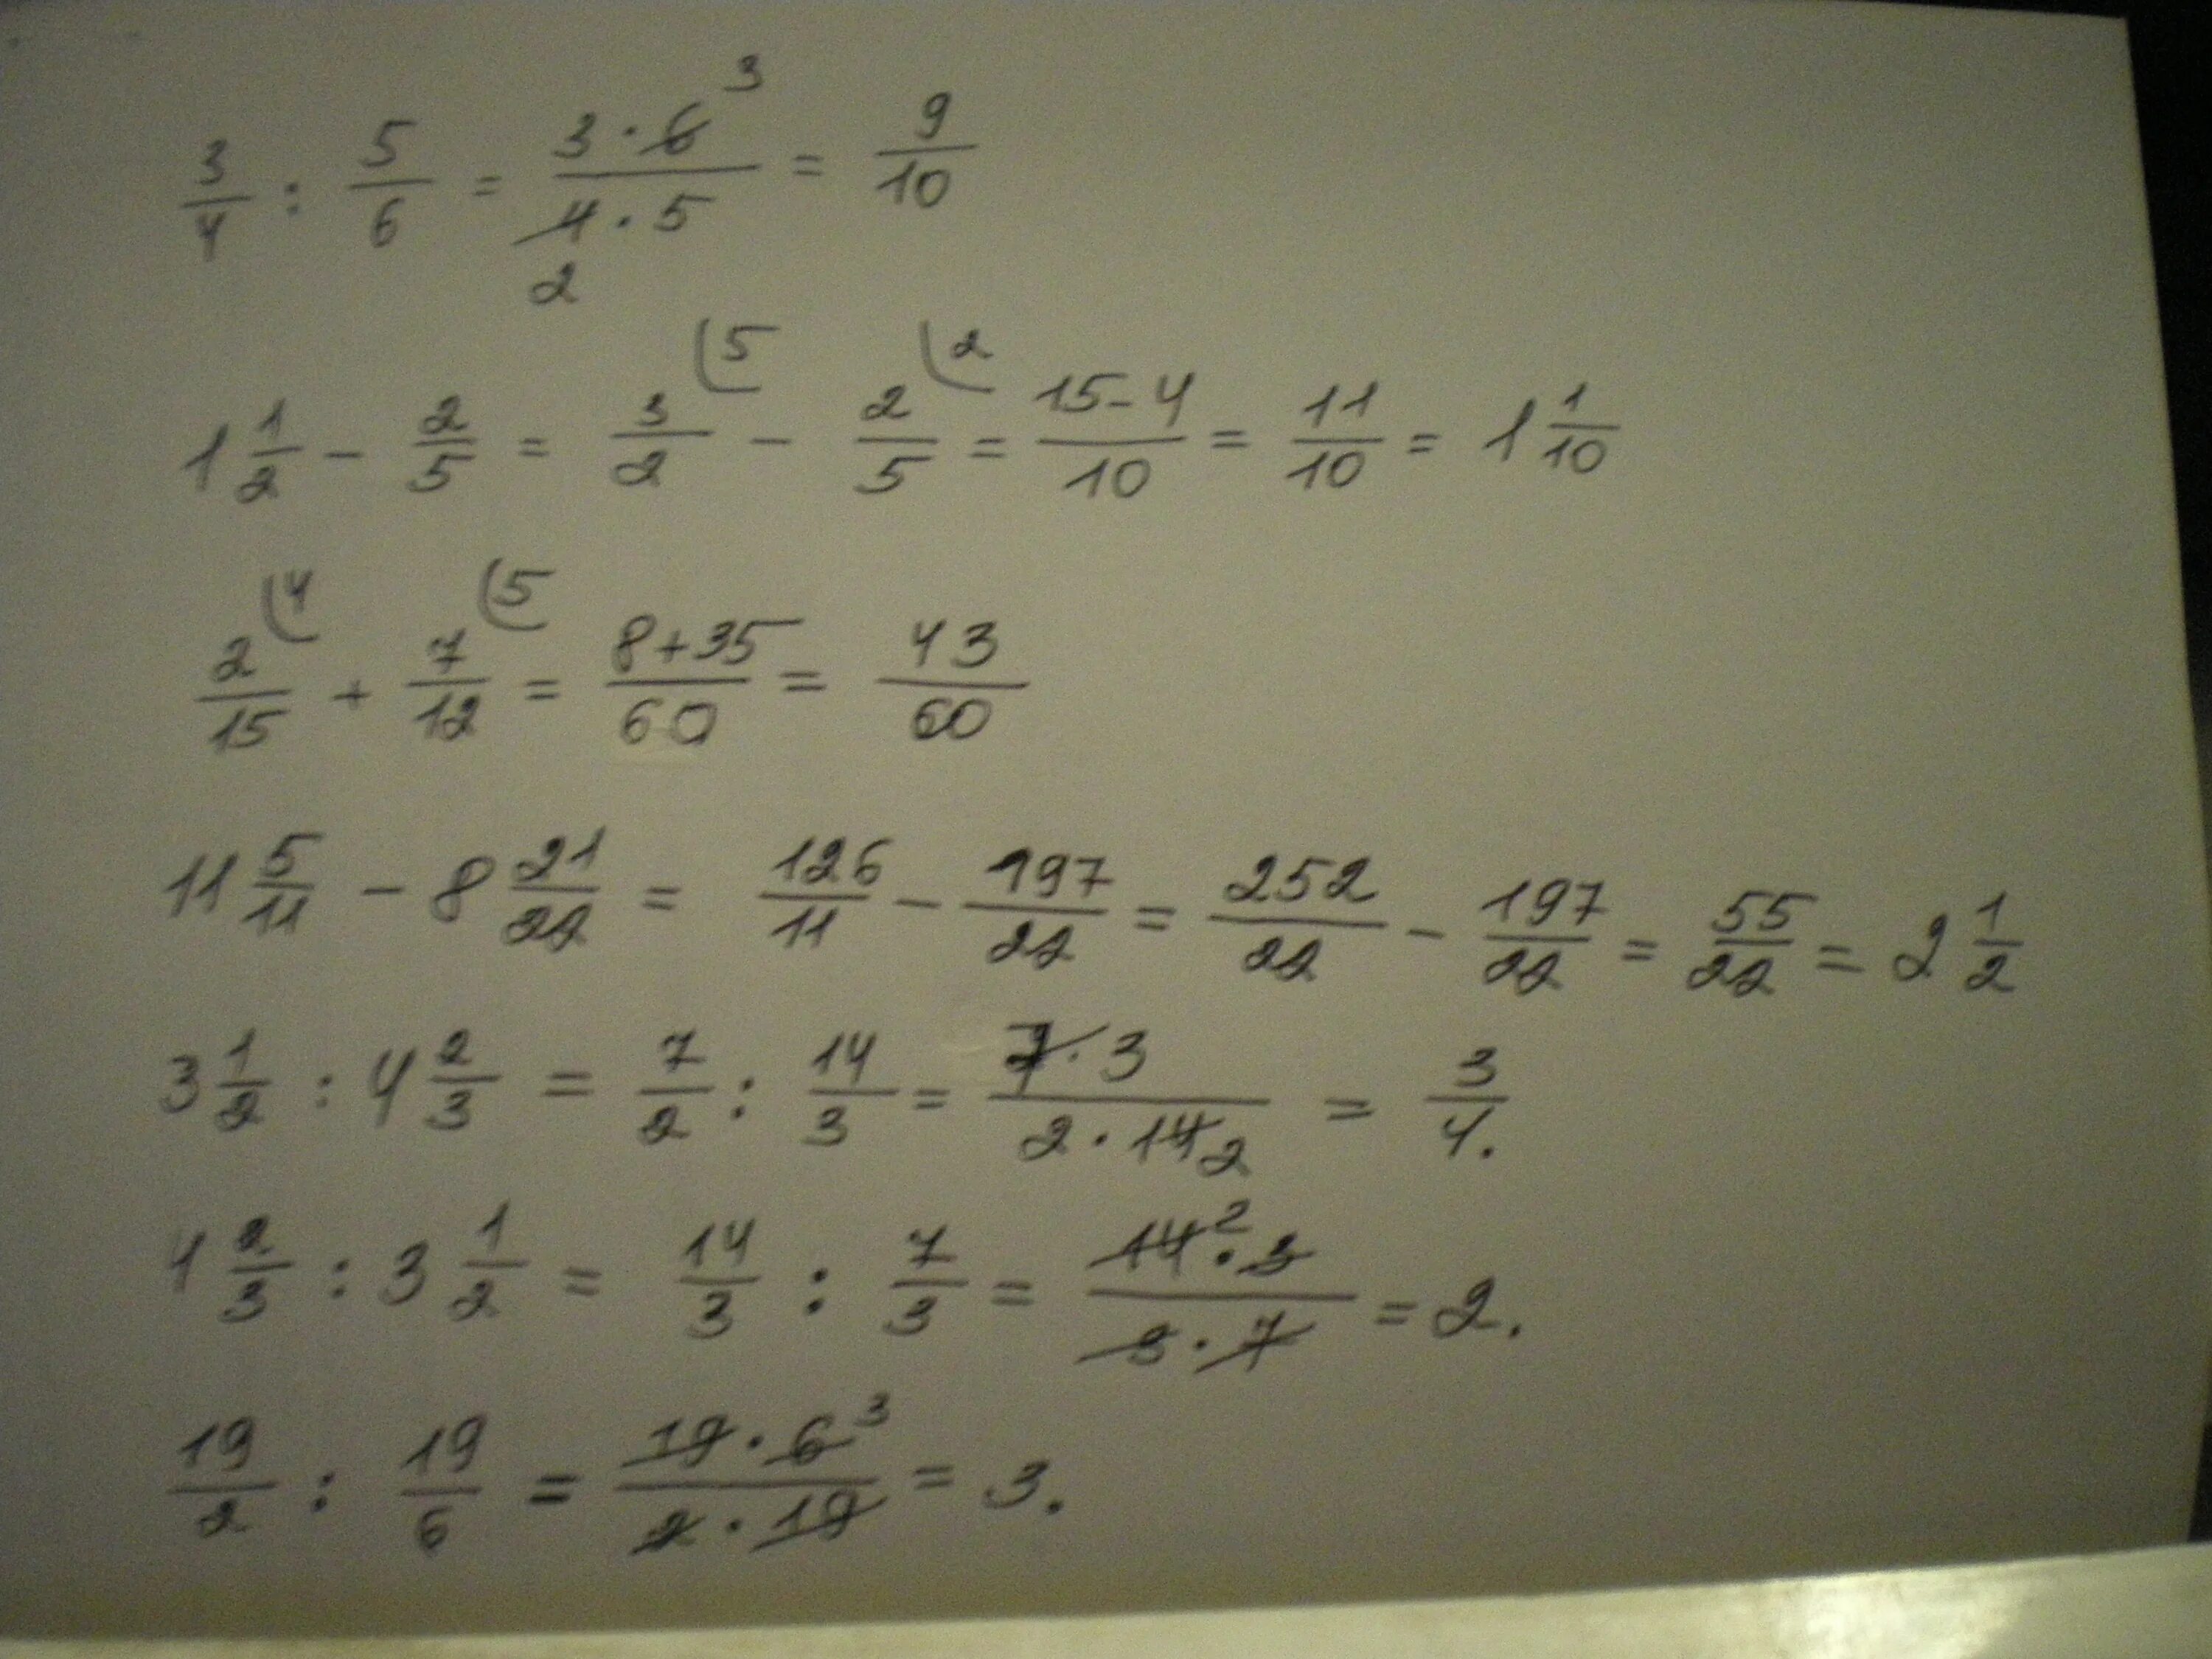 3/4 : 5/6 = 3·6 3/4·5 2 = 9/10
1 1/2 - 2/5 = 3/2 (5 - 2/5 (2 = 15-4/10 = 11/10 = 1 1/10
2/15 (4 + 7/12 (5 = 8+35/60 = 43/60
11 5/11 - 8 21/22 = 126/11 - 197/22 = 252/22 - 197/22 = 55/22 = 2 1/2
3 1/2 : 4 2/3 = 7/2 : 14/3 = 7·3/2·14 2 = 3/4.
4 2/3 : 3 1/2 = 14/3 : 7/3 = 14 2·3/3·7 = 2.
19/2 : 19/6 = 19·6 3/2·19 = 3.